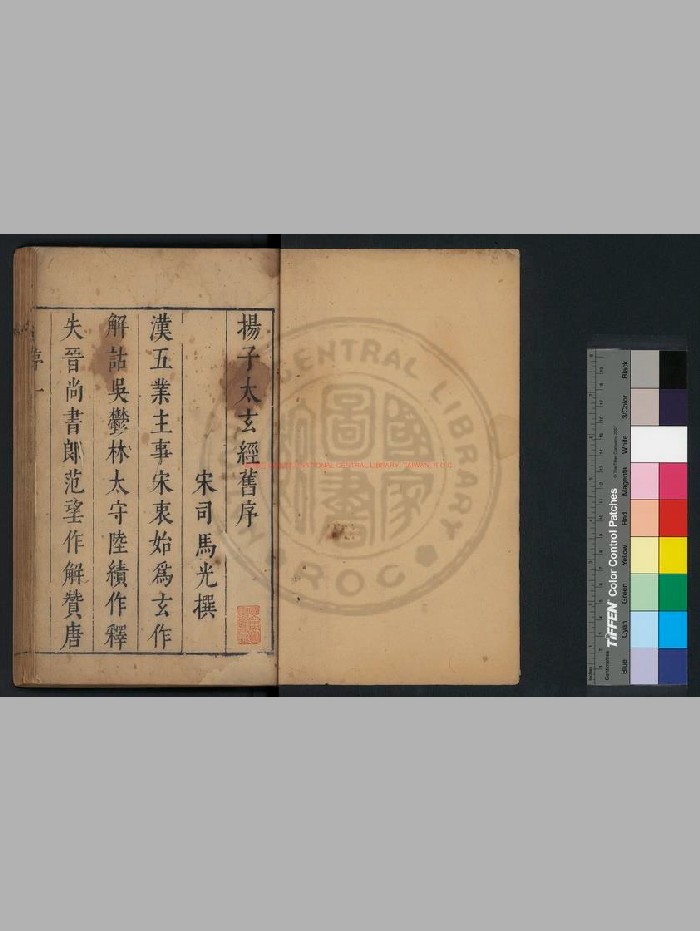 揚子太玄經舊序
宋司馬光撰
漢五業主事宋衷始爲玄作
解詁吳鬱林太守陸績作釋
失晉尚書郎范望作解贊唐
序 一
CENTRAL LIBRARY
ROC
圖
書
Black
3/Color
White
Magenta
Red
Yellow
Green
Cyan
Blue
TIFFEN Color Control Patches